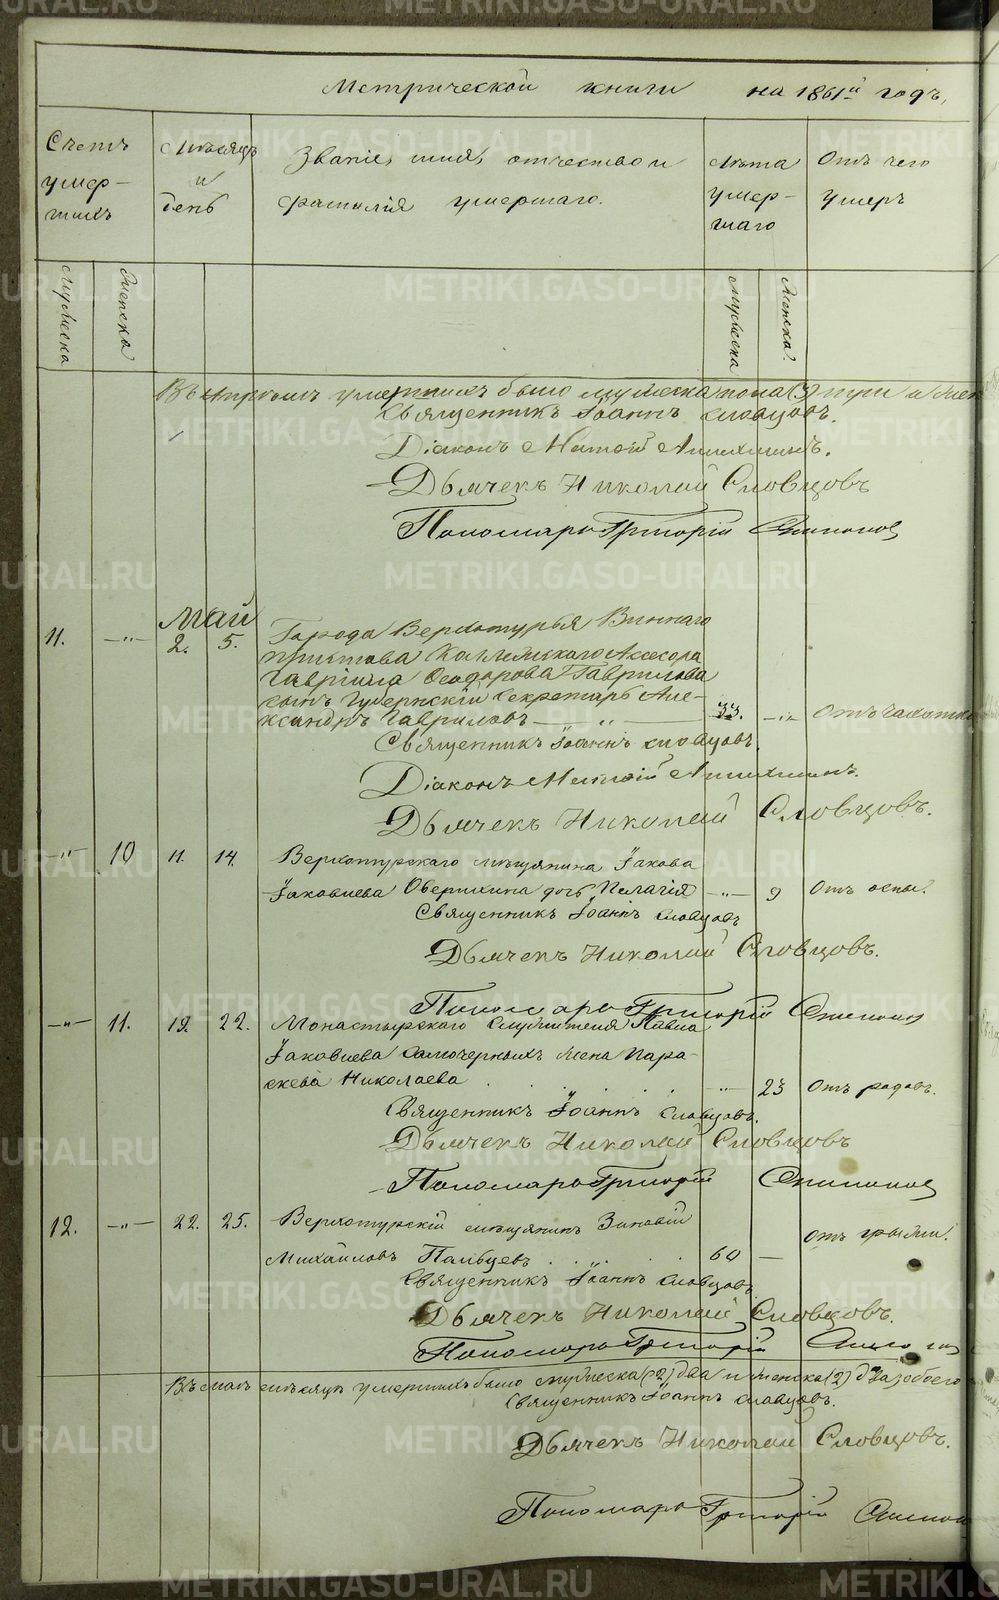 Метрической книги на 1861й годъ,
Счетъ умер-шихъ
Мѣсяцъ и день
Званіе, имя, отчество и фамилія умершаго.
Лѣта умер-шаго
Отъ чего умеръ
Мужеска
Женска
Мужеска
Женска.
Въ умершихъ было мужеска пола (3) три и жен
Священникъ Іоаннъ Словцовъ.
Діаконъ
Дьячекъ Николай Словцовъ
Пономарь Григорій
Май
11. —"— 2. 5. Города Верхотурья Виннаго
пристава Коллежскаго Ассесора
Гавріила Ѳеодорова Гаврилова
сынъ Губернскій Секретарь Але-
ксандръ Гавриловъ — " — 33. —"— Отъ чахотки
Священникъ Іоаннъ Словцовъ.
Діаконъ
Дьячекъ Николай Словцовъ.
—"— 10 11. 14. Верхотурскаго мѣщанина Іакова
Іаковлева дочь Пелагія —"— 9 Отъ оспы.
Священникъ Іоаннъ Словцовъ
Дьячекъ Николай Словцовъ.
Пономарь Григорій
—"— 11. 19. 22. Монастырскаго Служителя Павла
Іаковлева Самочерныхъ жена Пара-
скева Николаева " 23 Отъ родовъ.
Священникъ Іоаннъ Словцовъ.
Дьячекъ Николай Словцовъ
Пономарь Григорій
12. —"— 22. 25. Верхотурскій мѣщанинъ Зиновій
Михайловъ Пальцевъ 60 — Отъ грыжи.
Священникъ Іоаннъ Словцовъ
Дьячекъ Николай Словцовъ.
Пономарь Григорій
Въ маѣ мѣсяцѣ умершихъ было мужеска (2) два и женска (2) два обоего
Священникъ Іоаннъ Словцовъ.
Дьячекъ Николай Словцовъ.
Пономарь Григорій
METRIKI.GASO-URAL.RU